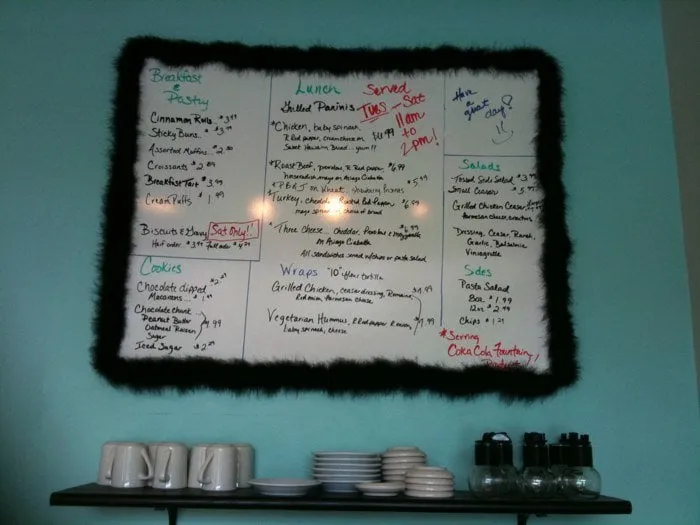 Breakfast
&
Pastry
Cinnamon Rolls $3.49
Sticky Buns..
Assorted Muffins..
Croissants
Breakfast Tart $3.99
Cream Puffs $1.99
Biscuits & Gravy Sat Only!!
Half order Full order
Cookies
Chocolate dipped
Macarons...
Chocolate Chunk
Peanut Butter
Oatmeal Raisin
Sugar
Iced Sugar
Lunch Served
Tues - Sat
11am
to
2pm!
Grilled Paninis
*Chicken, baby spinach,
R Red pepper, cream cheese on
Sweet Hawaiian Bread
*Roast Beef, provolone, R Red pepper $6.99
horseradish mayo on Asiago Ciabatta
*PB&J on Wheat, $5.99
*Turkey, cheddar, Roasted Red Pepper
mayo choice of bread
*Three Cheese... cheddar, Provolone &
on Asiago Ciabatta
All sandwiches served w/chips or pasta salad
Wraps "10" flour tortilla
Grilled Chicken, ceasar dressing, Romaine,
Red onion, Parmesan Cheese
Vegetarian Hummus, R Red Pepper R onion,
baby spinach, cheese
Have
a
great day!
Salads
Tossed Side Salad
Small Ceasar
Grilled Chicken Ceasar
Parmesan cheese, croutons
Dressing, Ceasar, Ranch,
Garlic, Balsamic
Vinaigrette
Sides
Pasta Salad
8oz $1.99
12oz $2.99
Chips
*Serving
Coka Cola Fountain
Products